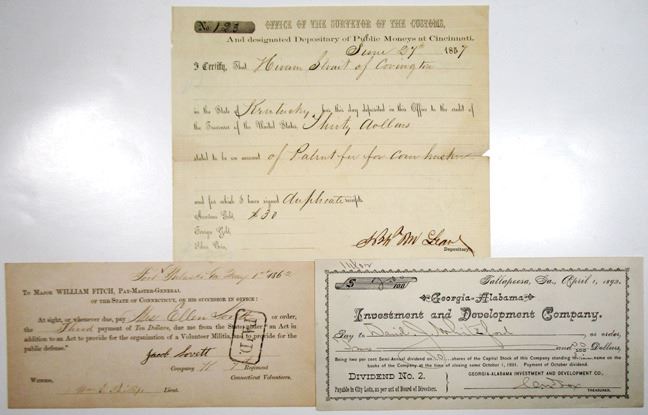 No. 123
OFFICE OF THE SURVEYOR OF THE CUSTOMS,
And designated Depositary of Public Moneys at Cincinnati,
June 27th 1857
I Certify, That Hiram Stuart of Covington
in the State of Kentucky, has this day deposited in this Office to the credit of
the Treasurer of the United States, Thirty dollars
stated to be on account of Patent fee for corn husker
and for which I have signed duplicate receipts.
American Gold, $30
Foreign Gold,
Silver Coin,
Depositary.
Fort Pulaski Ga May 1st 1862
TO MAJOR WILLIAM FITCH, PAY-MASTER-GENERAL
OF THE STATE OF CONNECTICUT, OR HIS SUCCESSOR IN OFFICE:
At sight, or whenever due, pay Mrs Ellen Lovett or order,
the Third payment of Ten Dollars, due me from the State under "an Act in
addition to an Act to provide for the organization of a Volunteer Militia, and to provide for the
public defense."
Jacob Lovett
Company H 7 Regiment
Connecticut Volunteers.
WITNESS,
Lieut.
PAID.
$ 1 00/100
Tallapoosa, Ga., April 1, 1892.
Georgia-Alabama
Investment and Development Company.
Pay to David J or order,
One 00/100 Dollars,
Being two per cent Semi-Annual dividend on 10 shares of the Capital Stock of this Company standing in name on the
books of the Company at the time of closing same October 1, 1891. Payment of October dividend.
DIVIDEND No. 2.
GEORGIA-ALABAMA INVESTMENT AND DEVELOPMENT CO.,
Payable in City Lots, as per act of Board of Directors.
TREASURER.